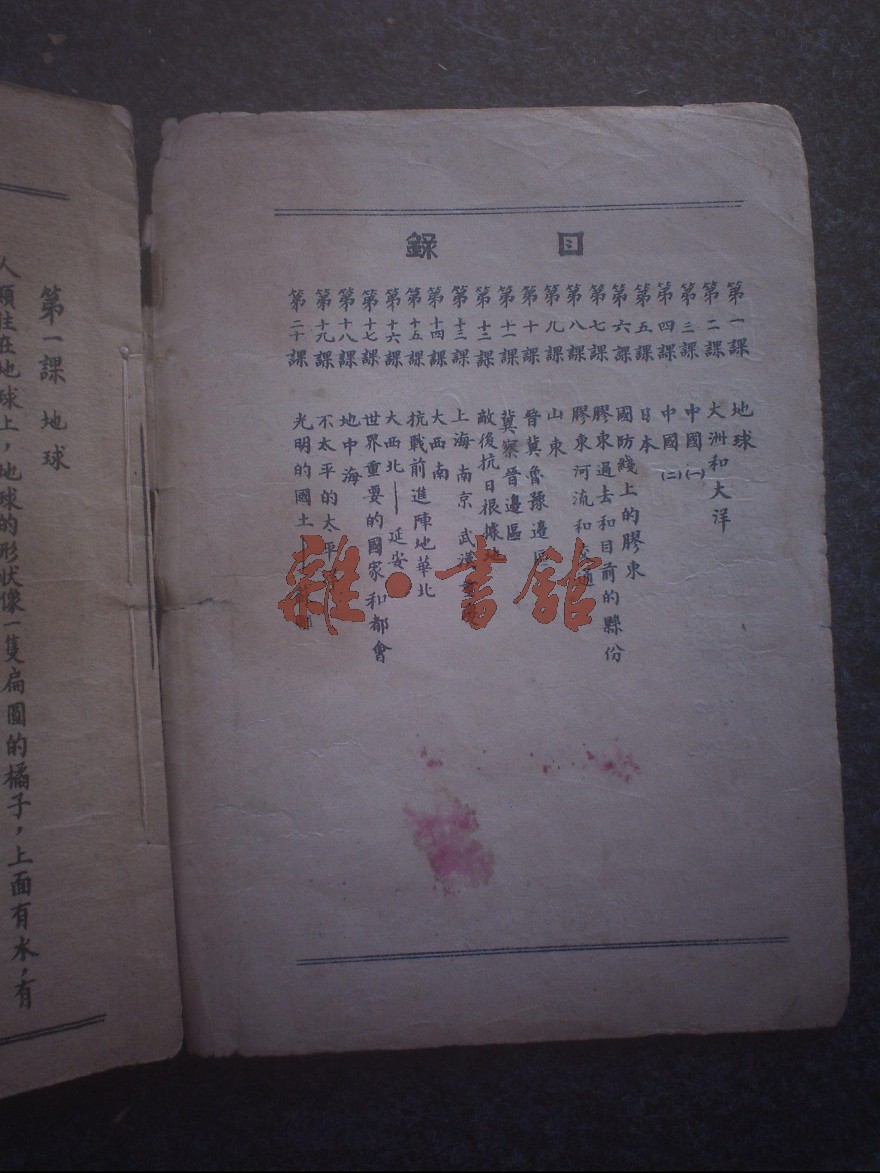 目錄
第一課 地球
第二課 大洲和大洋
第三課 中國(一)
第四課 中國(二)
第五課 日本
第六課 國防綫上的膠東
第七課 膠東過去和目前的縣份
第八課 膠東河流和交通
第九課 山東
第十課 晉冀魯豫邊區
第十一課 冀察晉邊區
第十二課 敵後抗日根據地
第十三課 上海 南京 武漢
第十四課 大西南
第十五課 抗戰前進陣地華北
第十六課 大西北——延安
第十七課 世界重要的國家和都會
第十八課 地中海
第十九課 不太平的太平
第二十課 光明的國土
第一課 地球
人類住在地球上,地球的形狀像一隻扁圓的橘子,上面有水,有
雜·書舘